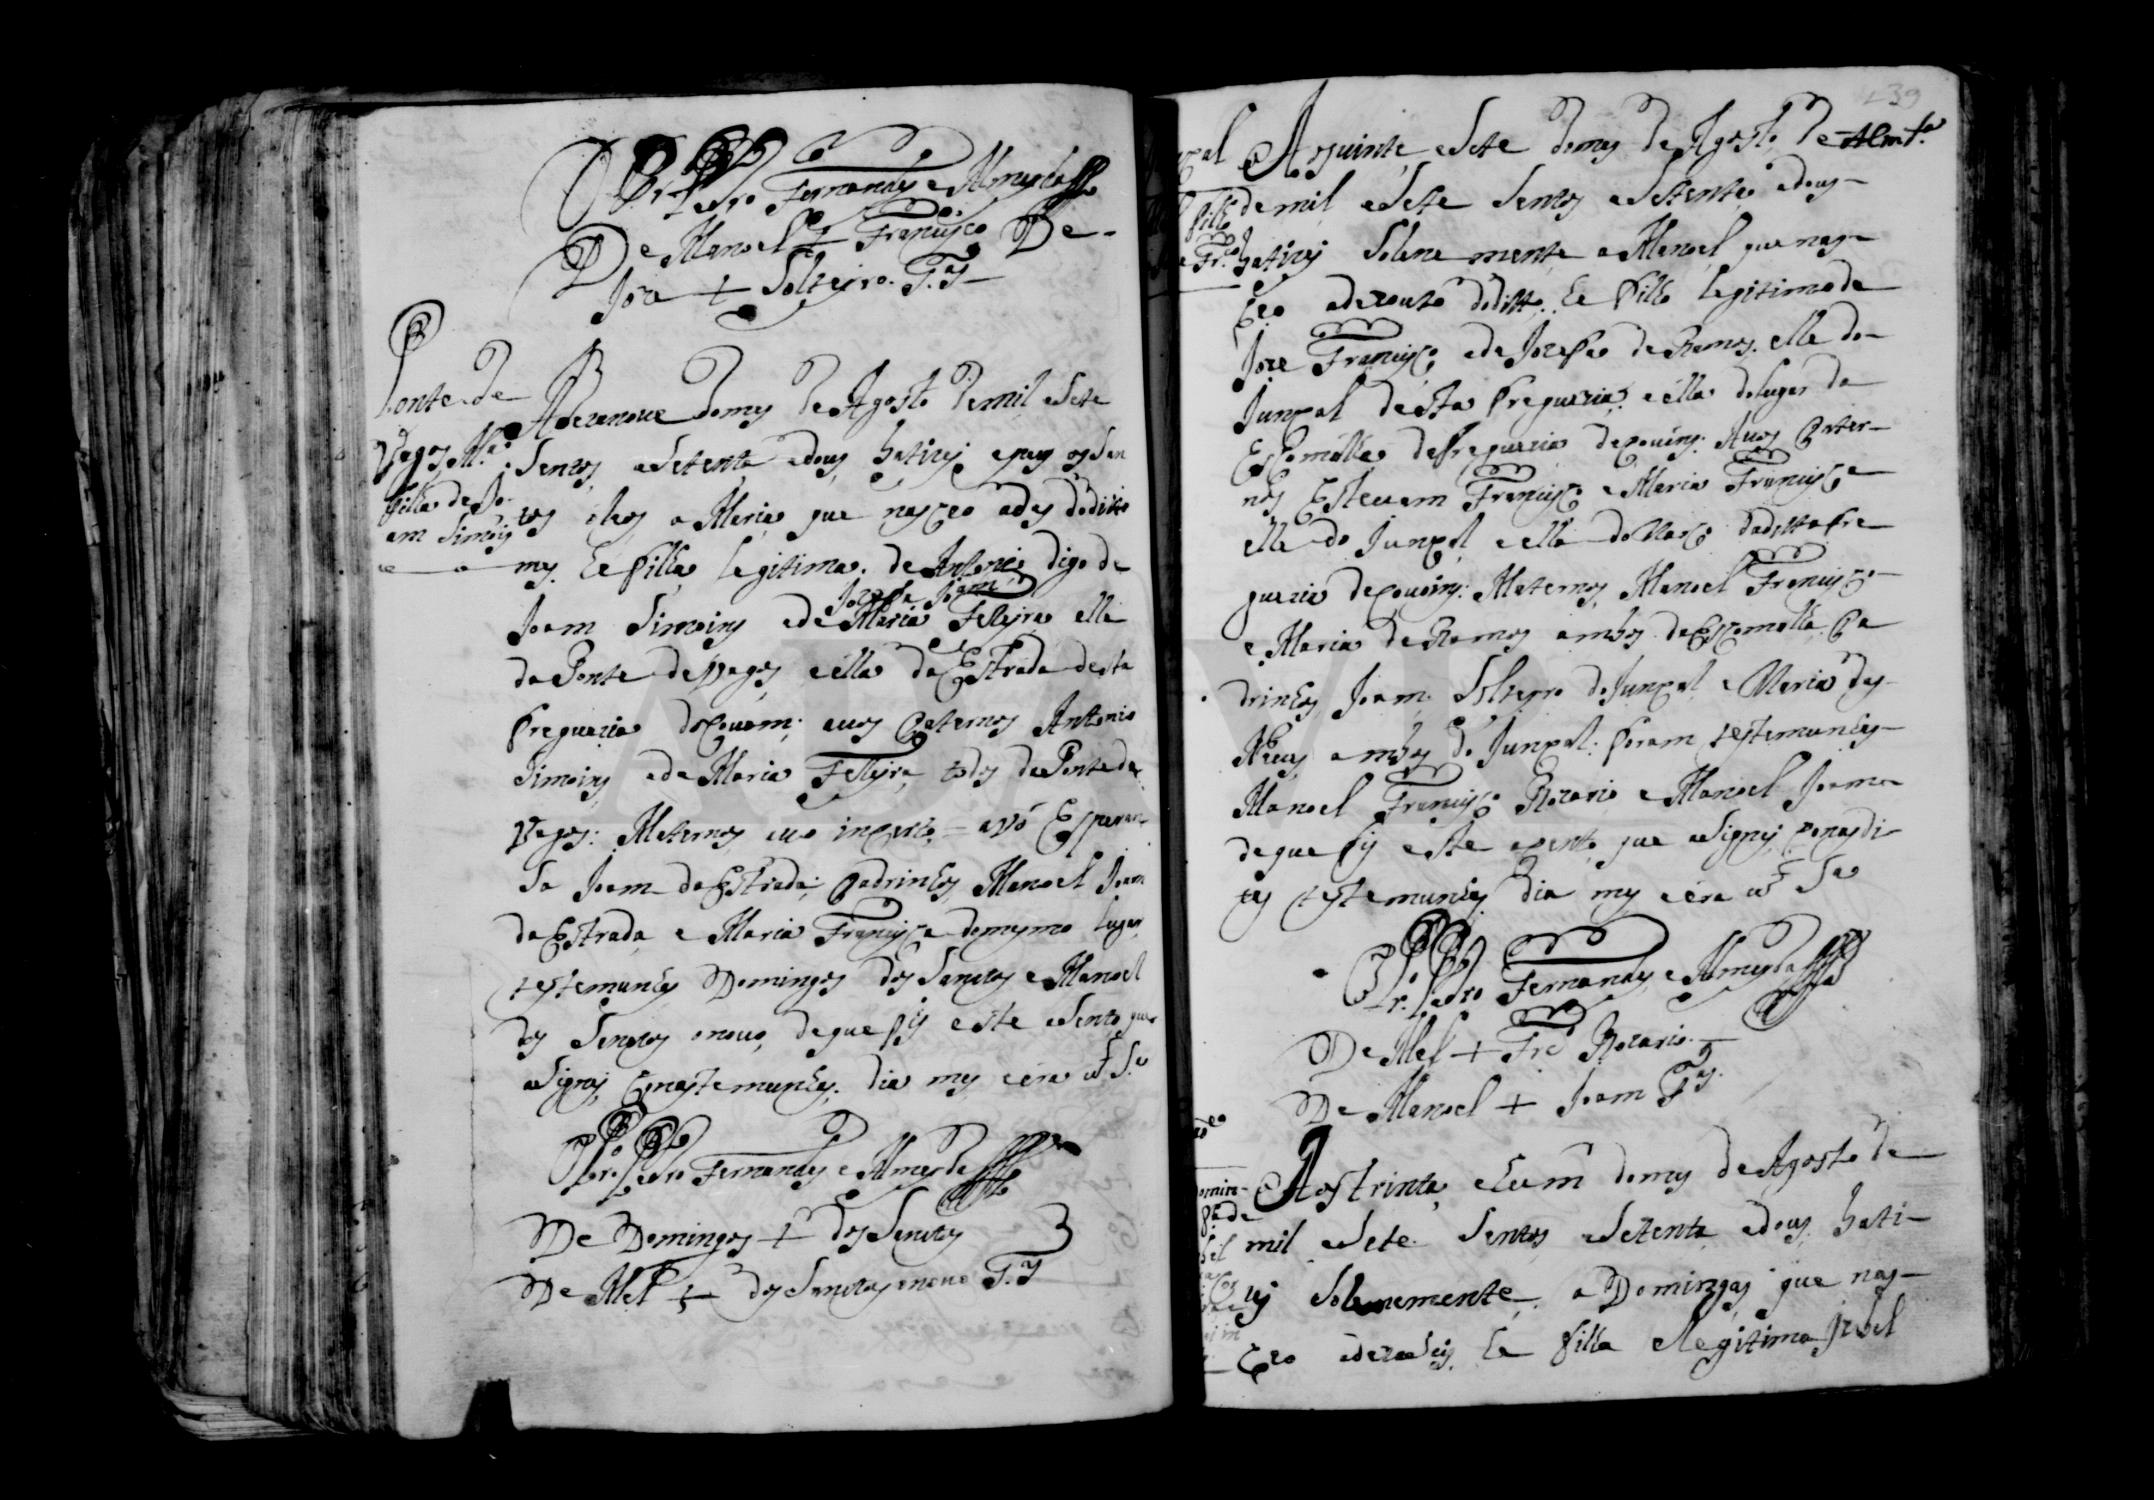 O Pr. Pedro Fernandes e Almeyda
De Manoel + Francisco De
Joze + Solteyro. T.as
Ponte de
Vagos M.a
filha de Jo
am Simois
A dezanove do mes de Agosto de mil e sete
sentos e setenta e dous batizei e pus os san
tos oleos a Maria que nasceo a des do dito
mes he filha legitima de Antonio digo de
Joam Simoins e de Maria Felleyra elle
Jozefa Joam
da Ponte de Vagos e ella da Estrada desta
freguezia de Covam; avos paternos Antonio
Simoins e de Maria Felleyra todos da Ponte de
Vagos: Maternos avo incerto = avó Esperan
sa Joam da Estrada; padrinhos Manoel Joam
da Estrada e Maria Francisca do mesmo lugar
testemunhas Domingos dos Sanctos e Manoel
dos Sanctos o novo, de que fis este asento que
asignei com as temunhas. dia mes e era ut S.a
O Pr. Pedro Fernandes e Almeyda
De Domingos + dos Sanctos
De Mel + dos Sanctos o novo T.as
139
Aos vinte e sete do mes de Agosto de
de mil e sete sentos e setenta e dous
filho
Fr.co batizei solene mente a Manoel que nas
ceo a dezouto do ditto. he filho legitimo de
Joze Francisco e de Jozefa de Ramos. elle do
Junqal desta freguezia: e ella do lugar da
Escomalha da freguezia de Covoins: Avos Pater
nos Estevam Francisco e Maria Francisca
elle do Junqal e ella do Marco da ditta fre
guezia de Covoins: Maternos Manoel Francisco
e Maria de Ramos ambos da Escomalha Pa
drinhos Joam Solteyro do Junqal e Maria das
Neves ambos do Junqal: foram testemunhas
Manoel Francisco Rozario e Manoel Joam
de que fis este asento que asignei com as di
tas testemunhas dia mes e era ut S.a
O Pr. Pedro Fernandes e Almeyda
De Mel + Fr.co Rozario.
De Manoel + Joam T.as
Aos trinta e hum do mes de Agosto de
mil e sete sentos e setenta e dous bati
zei solenemente a Domingas que nas
ceo a dezaseis he filha elegitima Izabel